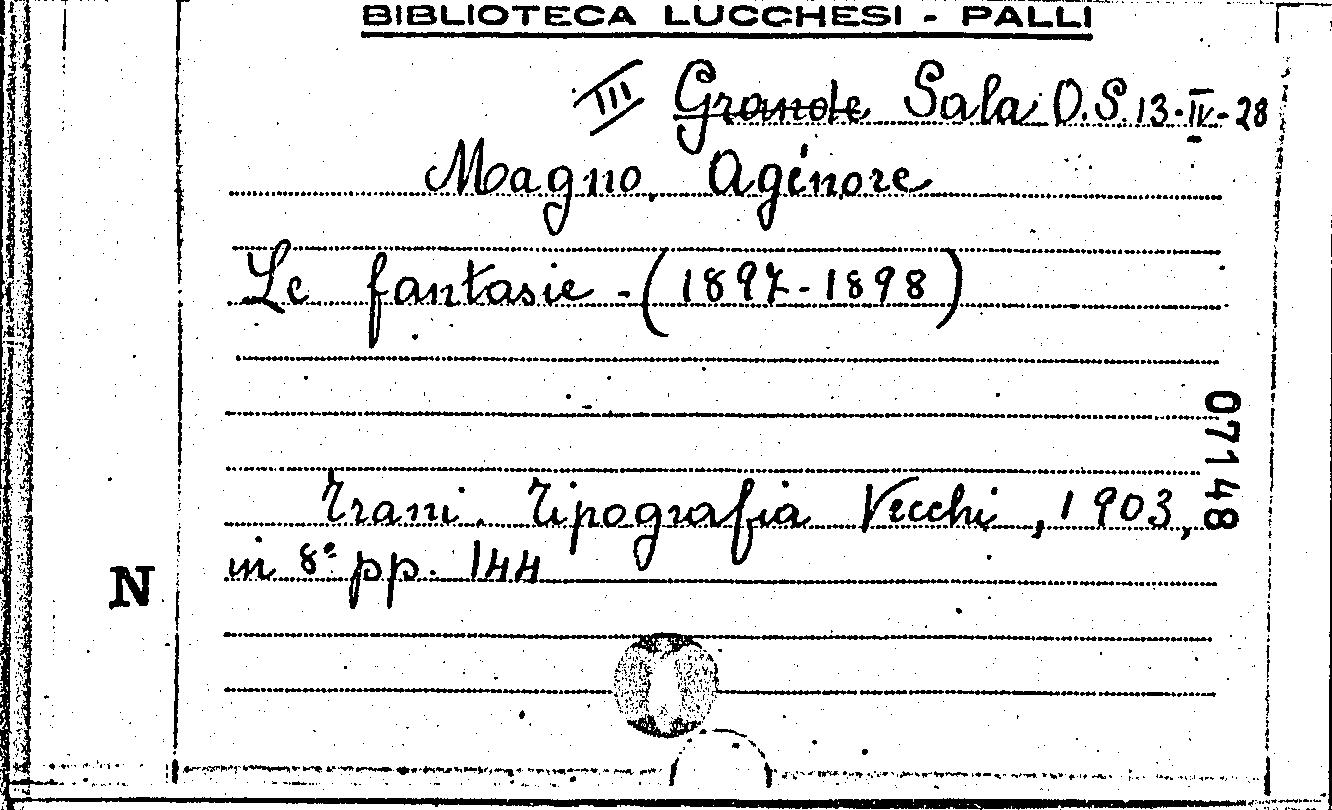 BIBLIOTECA LUCCHESI - PALLI
III Grande Sala O.S. 13-IV-28
Magno Agénore
Le fantasie - (1897-1898)
07148
Trani. Tipografia Vecchi, 1903,
in 8° pp. 144
N